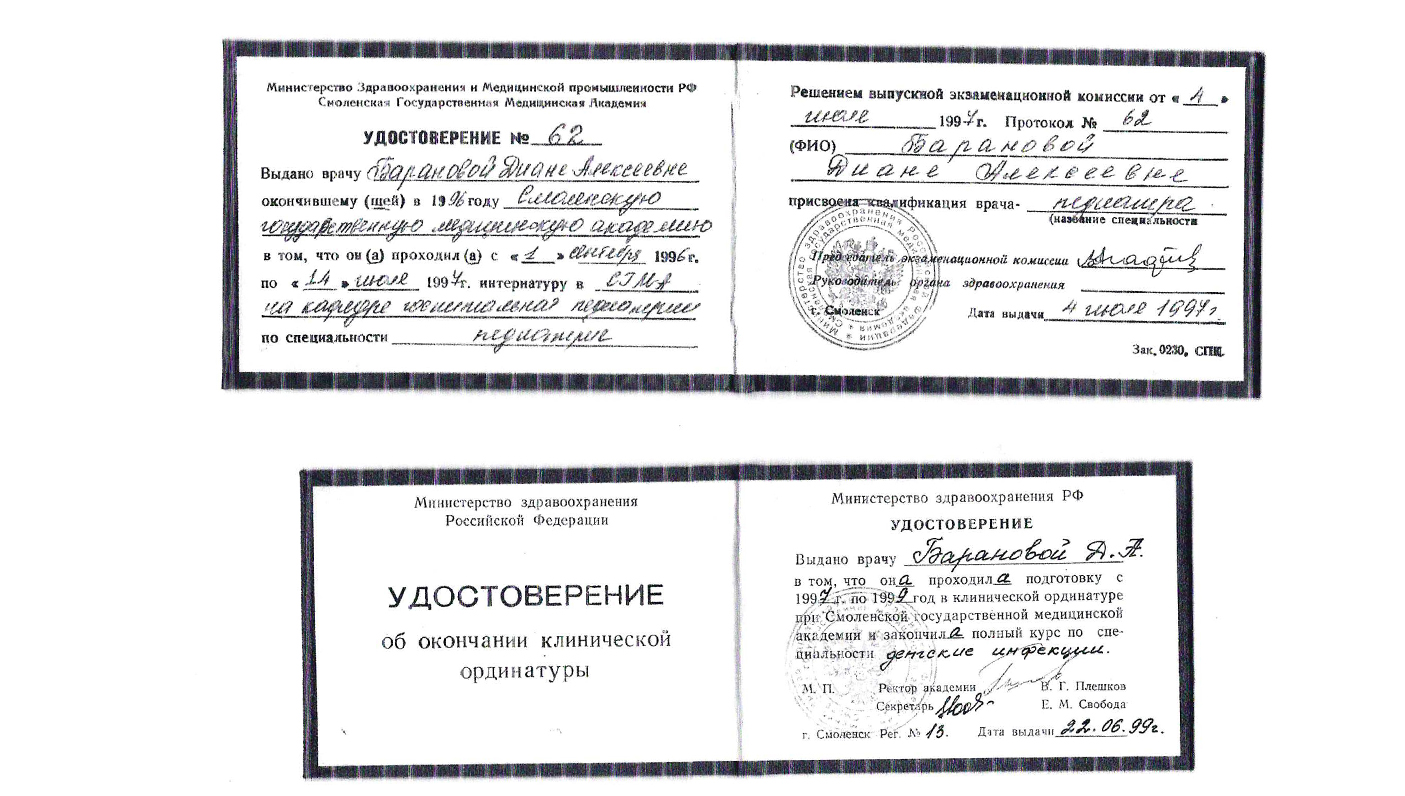 Министерство Здравоохранения и Медицинской промышленности РФ
Смоленская Государственная Медицинская Академия
УДОСТОВЕРЕНИЕ № 62
Выдано врачу Барановой Диане Алексеевне
окончившему (щей) в 1996 году Смоленскую
государственную медицинскую академию
в том, что он (а) проходил (а) с « 1 » сентября 1996 г.
по « 14 » июле 1997 г. интернатуру в СГМА
на кафедре госпитальная педиатрии
по специальности педиатрия
Решением выпускной экзаменационной комиссии от « 4 »
июле 1997 г. Протокол № 62
(ФИО) Барановой
Диане Алексеевне
присвоена квалификация врача- педиатра
(название специальности
Председатель экзаменационной комиссии
Руководитель органа здравоохранения
г. Смоленск Дата выдачи 4 июле 1997г.
Зак. 0230, СПЦ.
Министерство здравоохранения
Российской Федерации
УДОСТОВЕРЕНИЕ
об окончании клинической
ординатуры
Министерство здравоохранения РФ
УДОСТОВЕРЕНИЕ
Выдано врачу Барановой Д. А.
в том, что она проходила подготовку с
1997 г. по 1999 год в клинической ординатуре
при Смоленской государственной медицинской
академии и закончила полный курс по спе-
циальности детские инфекции.
М. П. Ректор академии В. Г. Плешков
Секретарь Е. М. Свобода
г. Смоленск Рег. № 13. Дата выдачи 22.06.99г.